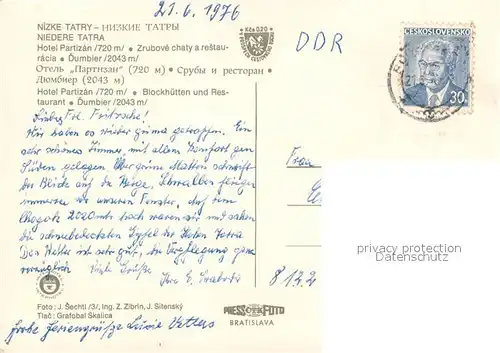 21.6.1976
NÍZKE TATRY – НИЗКИЕ ТАТРЫ
NIEDERE TATRA
Hotel Partizán /720 m/ • Zrubové chaty a reštau-
rácia • Ďumbier /2043 m/
Отель „Партизан" (720 м) • Срубы и ресторан •
Дюмбиер (2043 м)
Hotel Partizán /720 m/ • Blockhütten und Res-
taurant • Ďumbier /2043 m/
Kčs 0,20
DDR
ČESKOSLOVENSKO
30
Liebes Frl. Fritzsche!
Wir haben es wieder prima getroffen. Ein
sehr schönes Zimmer, mit allem Komfort gen
Süden gelegen. Über grüne Matten schweift
der Blick auf die Berge. Schwalben fliegen
immerzu an unseren Fenster. Auf dem
2020 mtr. hoch waren wir und sahen
die schneebedeckten Gipfel der Hohen Tatra.
Das Wetter ist sehr gut, die Verpflegung ganz
vorzüglich. Viele Grüße
Ihre E. Swoboda
Frau
8122
Foto: J. Šechtl /3/, Ing. Z. Zibrín, J. Sitenský
Tlač: Grafobal Skalica
PRESSFOTO
BRATISLAVA
Frohe Feriengrüße Luise Vetters
privacy protection
AnsichtskartenVersand.com